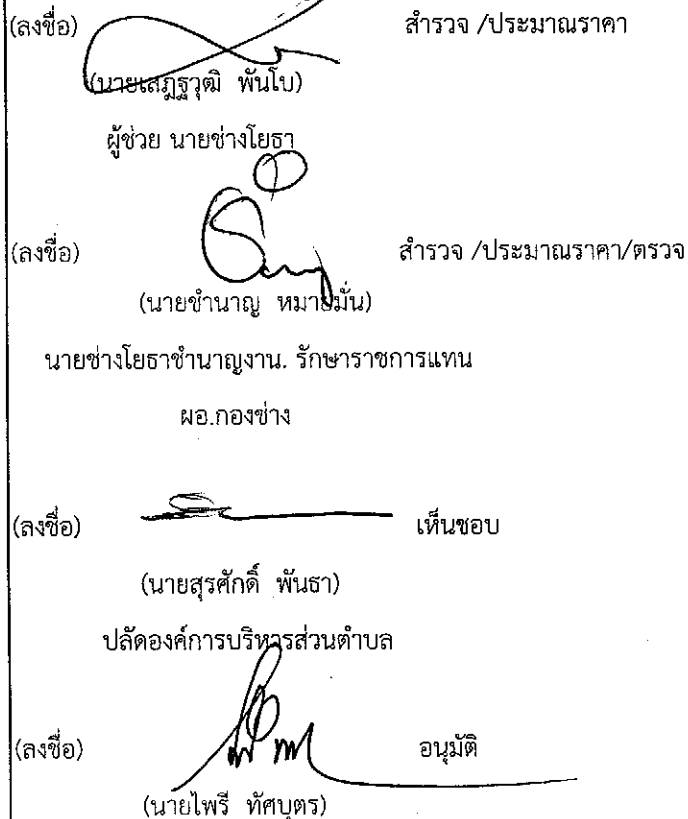 (ลงชื่อ) สำรวจ /ประมาณราคา
(นายเสฎฐวุฒิ พันโบ)
ผู้ช่วย นายช่างโยธา
(ลงชื่อ) สำรวจ /ประมาณราคา/ตรวจ
(นายชำนาญ หมายมั่น)
นายช่างโยธาชำนาญงาน. รักษาราชการแทน
ผอ.กองช่าง
(ลงชื่อ) เห็นชอบ
(นายสุรศักดิ์ พันธา)
ปลัดองค์การบริหารส่วนตำบล
(ลงชื่อ) อนุมัติ
(นายไพรี ทัศบุตร)